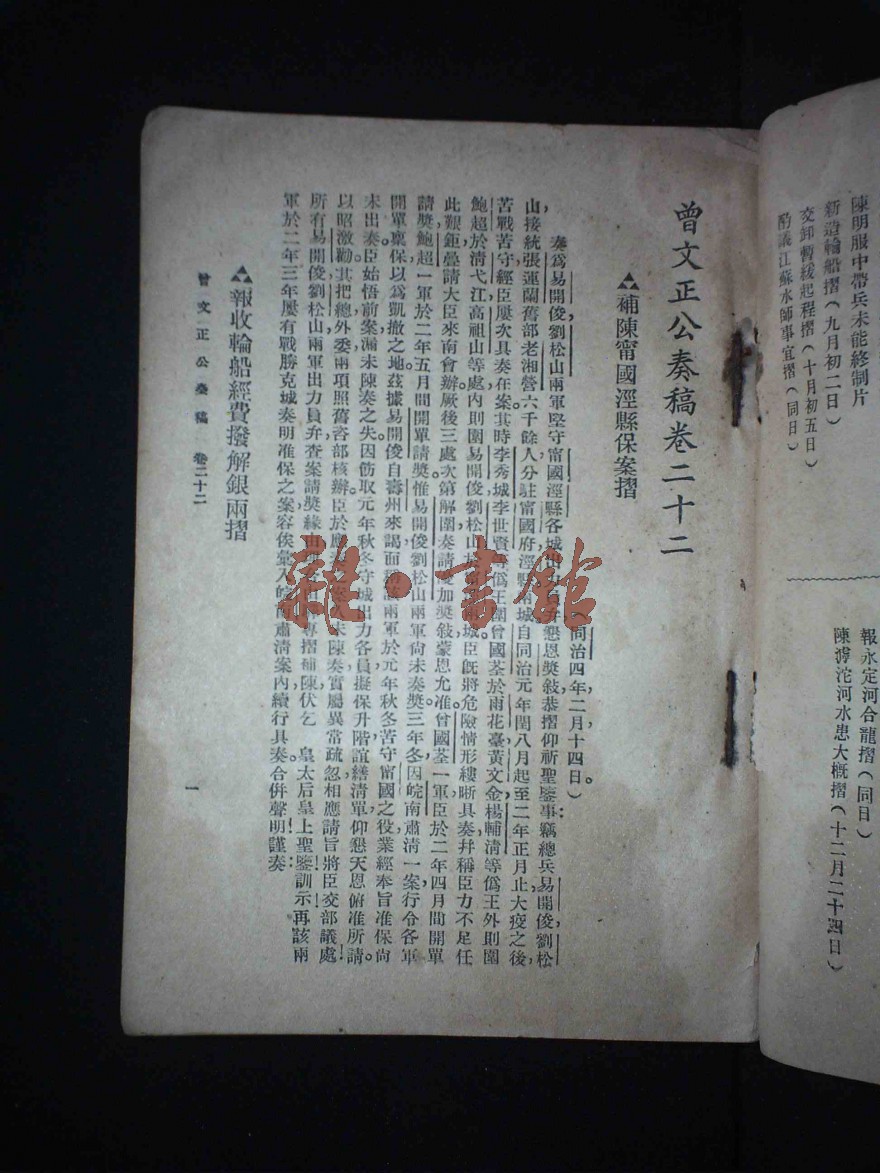 陳明服中帶兵未能終制片
新造輪船摺(九月初二日)
交卸暫緩起程摺(十月初五日)
酌議江蘇水師事宜摺(同日)
報永定河合龍摺(同日)
陳滹沱河水患大槪摺(十二月二十四日)
曾文正公奏稿卷二十二
補陳甯國涇縣保案摺
(同治四年二月十四日)。
奏爲易開俊劉松山兩軍堅守甯國涇縣各城出力員弁懇恩獎敍恭摺仰祈聖鑒事竊總兵易開俊劉松
山接統張運蘭舊部老湘營六千餘人分駐甯國府涇縣兩城自同治元年閏八月起至二年正月止大疫之後
苦戰苦守經臣屢次具奏在案其時李秀城李世賢等僞王圍曾國荃於雨花臺黃文金楊輔淸等僞王外則圍
鮑超於淸弋江高祖山等處內則圍易開俊劉松山於 兩城臣旣將危險情形縷晰具奏幷稱臣力不足任
此艱鉅疊請大臣來南會辦厥後三處次第解圍奏請 加獎敍蒙恩允准曾國荃一軍臣於二年四月間開單
請獎鮑超一軍於二年五月間開單請獎惟易開俊劉松山兩軍尙未奏獎三年冬因皖南肅淸一案行令各軍
開單稟保以爲凱撤之地茲據易開俊自壽州來謁面稱 兩軍於元年秋冬苦守甯國之役業經奉旨准保尙
未出奏臣始悟前案漏未陳奏之失因飭取元年秋冬守城出力各員擬保升階謄繕淸單仰懇天恩俯准所請
以昭激勸其把總外委兩項照舊咨部核辦臣於應 未陳奏實屬異常疏忽相應請旨將臣交部議處
所有易開俊劉松山兩軍出力員弁查案請獎緣由 專摺補陳伏乞 皇太后皇上聖鑒訓示再該兩
軍於二年三年屢有戰勝克城奏明准保之案容俟彙入皖南肅淸案內續行具奏合併聲明謹奏
報收輪船經費撥解銀兩摺
曾文正公奏稿 卷二十二
一
雜·書館